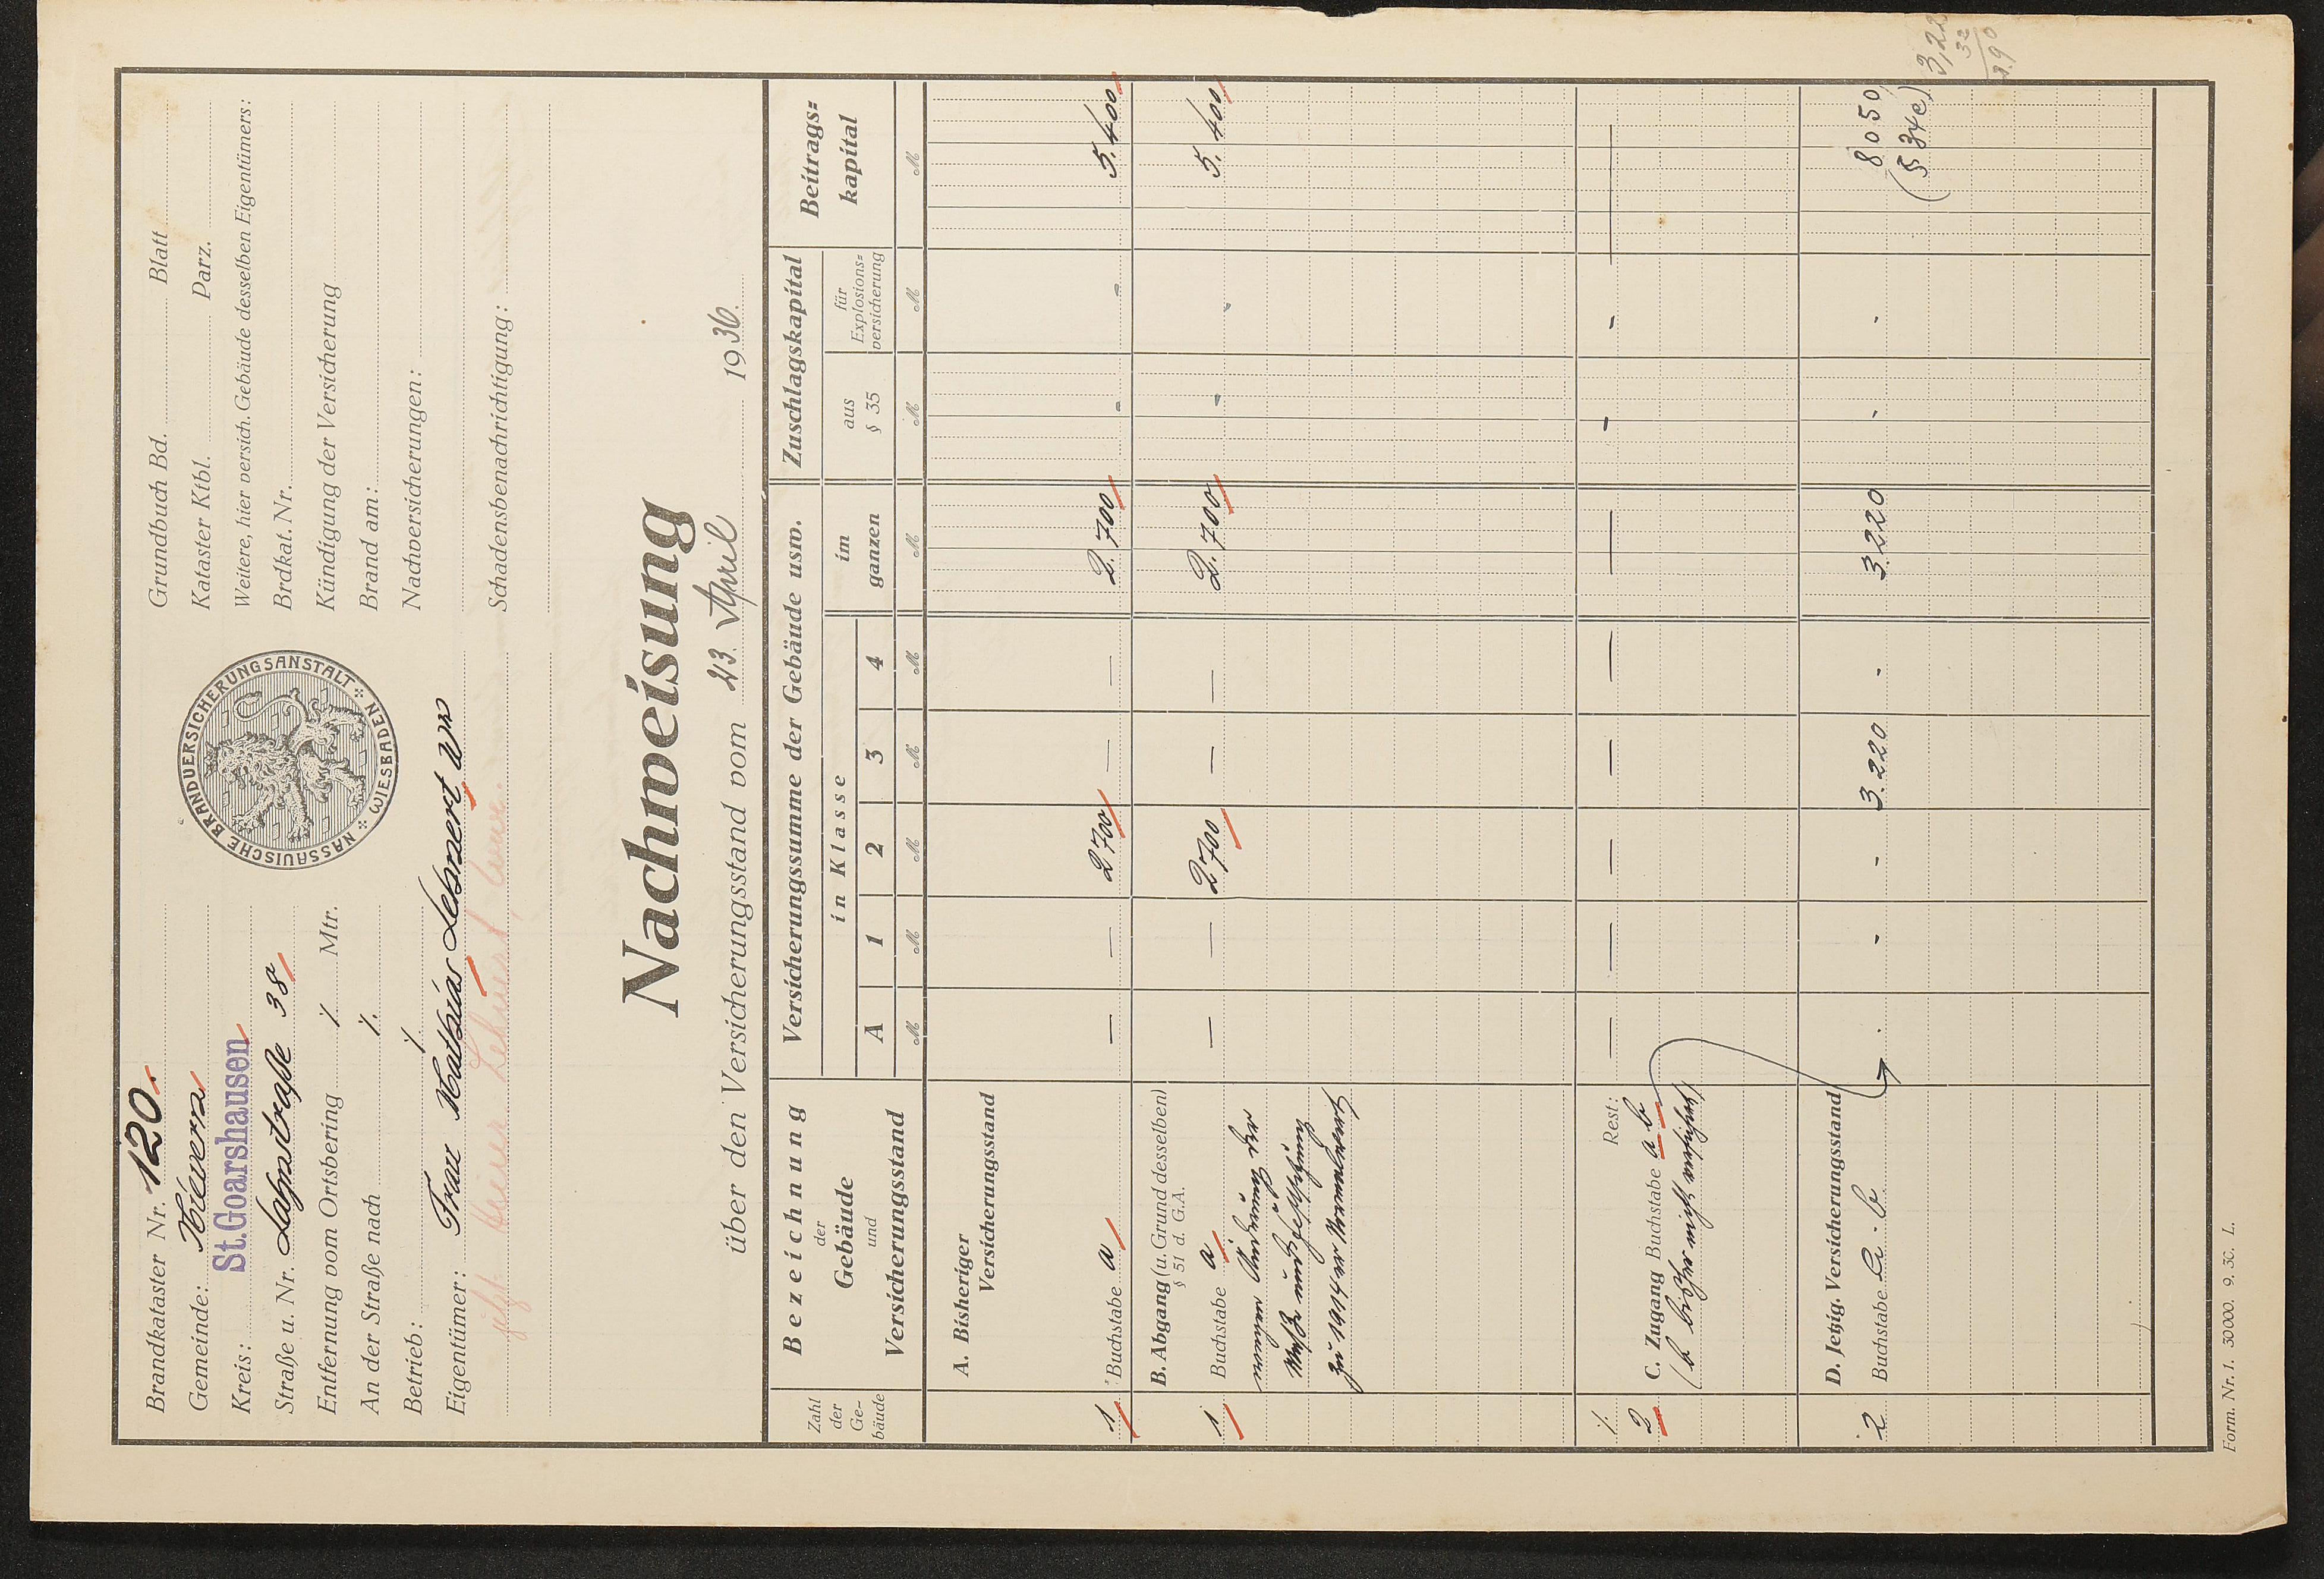 Brandkataster Nr. 120.
Gemeinde: Kievern
Kreis: St. Goarshausen
Straße u. Nr. Lahnstraße 38
Entfernung vom Ortsbering ./. Mtr.
An der Straße nach ./.
Betrieb: ./.
Eigentümer: Frau Mathias Lehnert Ww
jetzt: Lehnert
NASSAUISCHE BRANDVERSICHERUNGSANSTALT WIESBADEN
Grundbuch Bd. Blatt
Kataster Ktbl. Parz.
Weitere, hier versich. Gebäude desselben Eigentümers:
Brdkat. Nr.
Kündigung der Versicherung
Brand am:
Nachversicherungen:
Schadensbenachrichtigung:
Nachweisung
über den Versicherungsstand vom 23. April 1936.
Zahl der Ge-bäude
Bezeichnung
der
Gebäude
und
Versicherungsstand
Versicherungssumme der Gebäude usw.
in Klasse
A 1 2 3 4
im ganzen
Zuschlagskapital
aus § 35
für Explosions-versicherung
Beitrags-kapital
M M M M M M M M M
A. Bisheriger
Versicherungsstand
1 Buchstabe a — — 2700 — — 2.700 - - 5.400
B. Abgang (u. Grund desselben)
§ 51 d. G.A.
1 Buchstabe a — — 2700 — — 2.700 - - 5.400
wegen Änderung der
und
zu 1914er
./. Rest: — — — — — — - - —
2 C. Zugang Buchstabe a b
(b bisher nicht
D. Jetzig. Versicherungsstand
2 Buchstabe a. b . - - 3.220 - 3.220 - - 8050
(§ 34c)
3,22
32
Form. Nr. 1. 30000. 9. 30. L.